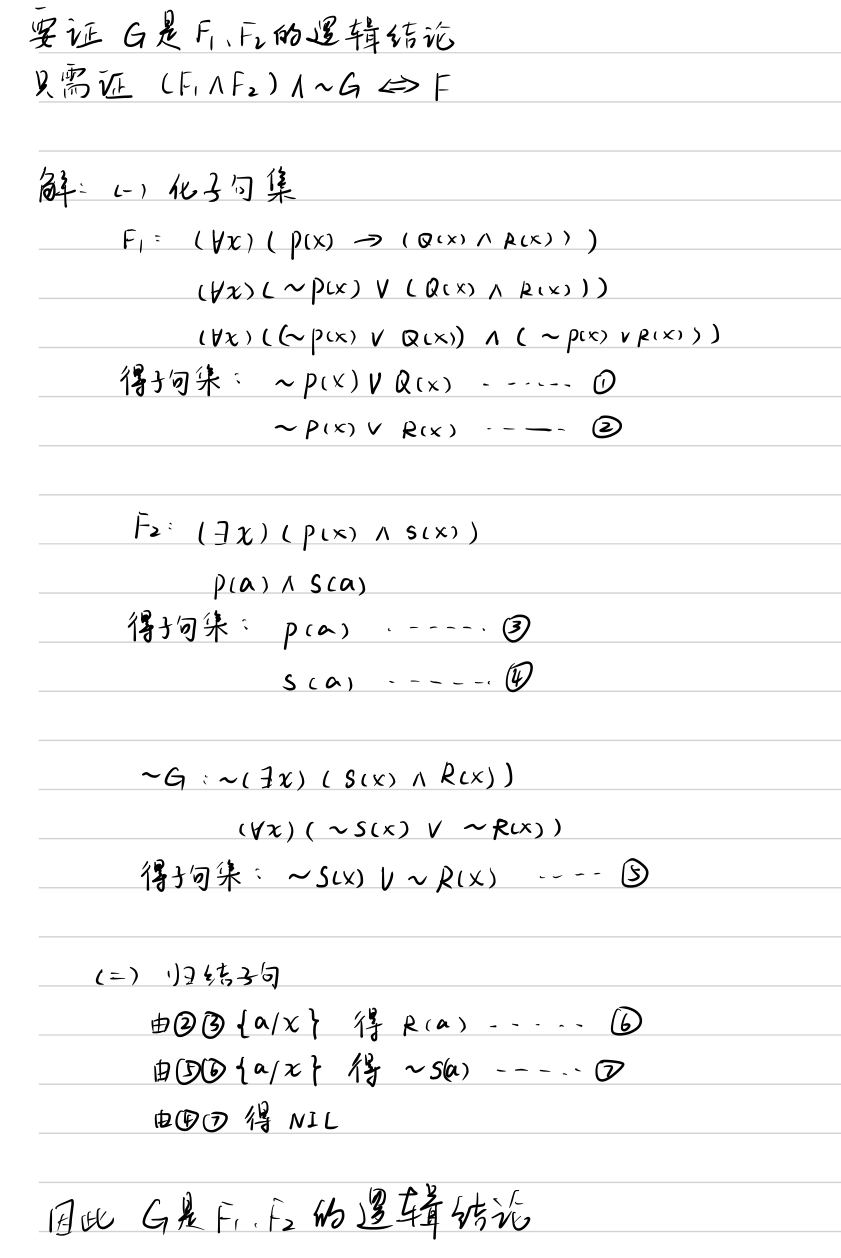 要证 G是F₁、F₂的逻辑结论
只需证 (F₁∧F₂)∧~G ⇔ F
解: (一) 化子句集
F₁: (∀x)(P(x) → (Q(x) ∧ R(x)))
(∀x)(~P(x) ∨ (Q(x) ∧ R(x)))
(∀x)((~P(x) ∨ Q(x)) ∧ (~P(x) ∨ R(x)))
得子句集: ~P(x) ∨ Q(x) ------ ①
~P(x) ∨ R(x) ------ ②
F₂: (∃x)(P(x) ∧ S(x))
P(a) ∧ S(a)
得子句集: P(a) ------ ③
S(a) ------ ④
~G: ~(∃x)(S(x) ∧ R(x))
(∀x)(~S(x) ∨ ~R(x))
得子句集: ~S(x) ∨ ~R(x) ---- ⑤
(二) 归结子句
由②③{a/x} 得 R(a) ------ ⑥
由⑤⑥{a/x} 得 ~S(a) ------ ⑦
由④⑦ 得 NIL
因此 G是F₁、F₂的逻辑结论